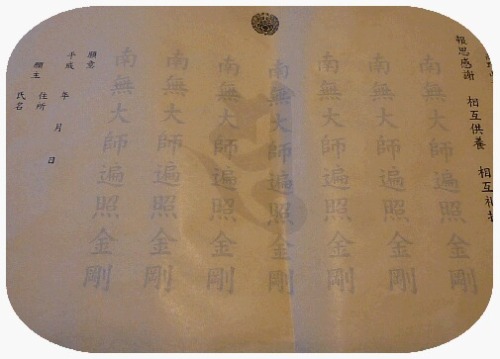 報恩感謝 相互供養 相互礼
南無大師遍照金剛
南無大師遍照金剛
南無大師遍照金剛
南無大師遍照金剛
南無大師遍照金剛
南無大師遍照金剛
南無大師遍照金剛
願意
平成 年 月 日
願主 住所
氏名